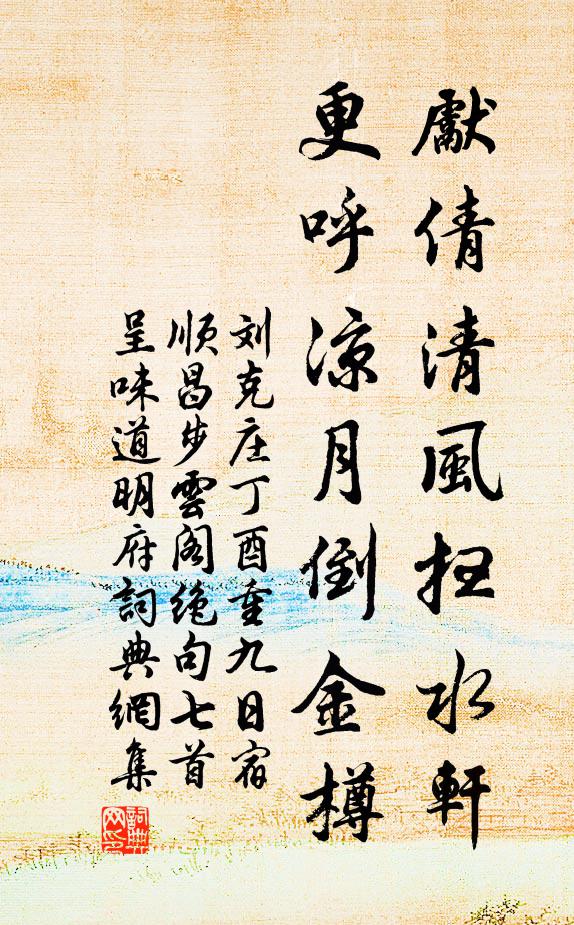 獻倩清風扫水軒
更呼凉月倒金樽
刘克庄丁酉重九日宿
順昌步雲阁绝句七首
呈味道明府詞典網集
詞典
网印